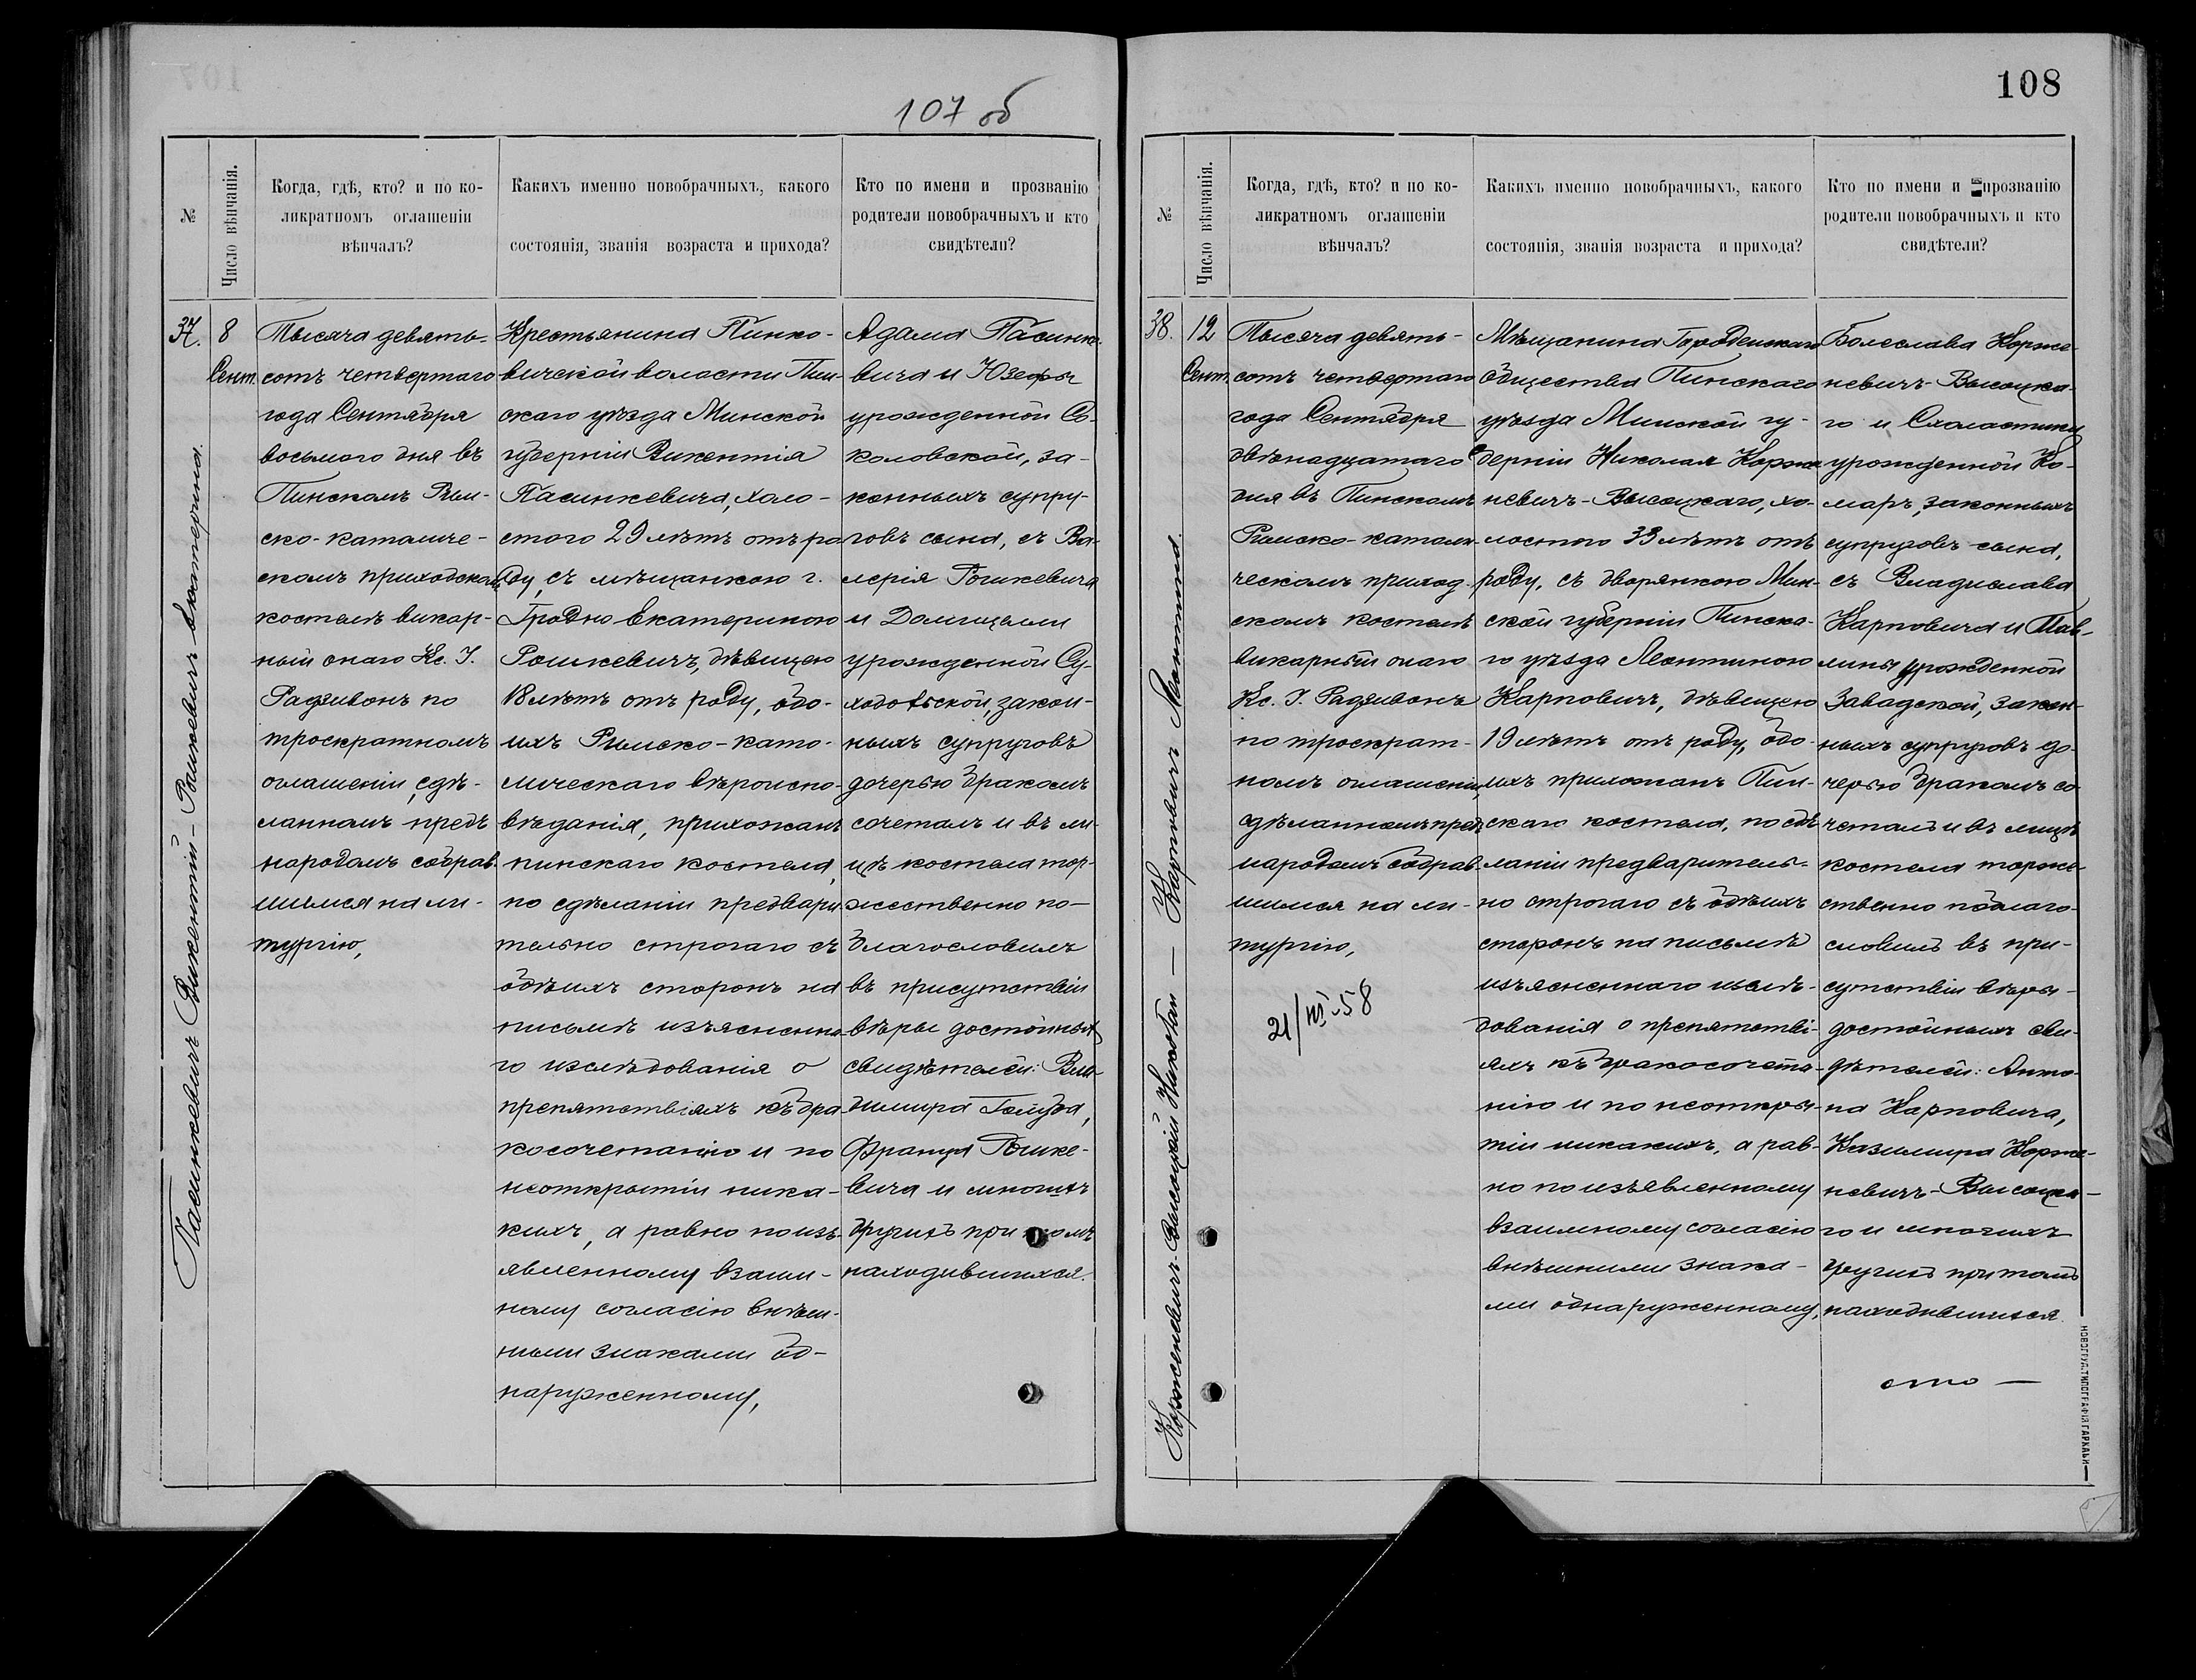 107 об
№
Число вѣнчанія.
Когда, гдѣ, кто? и по ко-
ликратномъ оглашеніи
вѣнчалъ?
Какихъ именно новобрачныхъ, какого
состоянія, званія возраста и прихода?
Кто по имени и прозванію
родители новобрачныхъ и кто
свидѣтели?
37.
8
Сент.
Пасинкевичъ Викентій - Рошкевичъ Екатерина.
Тысяча девять-
сотъ четвертаго
года Сентября
восьмого дня въ
Пинскомъ Рим-
ско-католиче-
скомъ приходскомъ
костелѣ викар-
ный онаго Кс. I.
Радзивонъ по
троекратномъ
оглашеніи, сдѣ-
ланномъ предъ
народомъ собрав-
шимся на ли-
тургію,
Крестьянина Пинко-
вичской волости Пин-
скаго уѣзда Минской
губерніи Викентія
Пасинкевича, холо-
стого 29 лѣтъ отъ ро
ду, съ мѣщанкою г.
Гродно Екатериною
Рошкевичъ, дѣвицею
18 лѣтъ отъ роду, обо-
ихъ Римско-като-
лическаго вѣроиспо-
вѣданія, прихожанъ
пинскаго костела,
по сдѣланіи предвари
тельно строгаго съ
обѣихъ сторонъ на
письмѣ изъясненна
го изслѣдованія о
препятствіяхъ къ бра-
косочетанію и по
неоткрытіи ника-
кихъ, а равно по изъ-
явленному взаим-
ному согласію внѣш-
ными знаками об-
наруженному,
Адама Пасинке-
вича и Юзефы
урожденной Со-
коловской, за-
конныхъ супру-
говъ сына, съ Ва-
лерія Рошкевича
и Домицели
урожденной Су-
ходольской, закон-
ныхъ супруговъ
дочерью бракомъ
сочеталъ и въ ли-
цѣ костела тор-
жественно по-
благословилъ
въ присутствіи
вѣры достойныхъ
свидѣтелей: Вла-
димира
Франца Рошке-
вича и многихъ
другихъ при томъ
находившихся.
108
№
Число вѣнчанія.
Когда, гдѣ, кто? и по ко-
ликратномъ оглашеніи
вѣнчалъ?
Какихъ именно новобрачныхъ, какого
состоянія, званія возраста и прихода?
Кто по имени и прозванію
родители новобрачныхъ и кто
свидѣтели?
38.
12
Сент.
Корженевичъ-Высоцкій Николай — Карповичъ Леонтина.
Тысяча девять-
сотъ четвертаго
года Сентября
двѣнадцатаго
дня въ Пинскомъ
Римско-католи
ческомъ приход-
скомъ костелѣ
викарный онаго
Кс. I. Радзивонъ
по троекрат-
номъ оглашеніи,
сдѣланномъ предъ
народомъ собрав-
шимся на ли-
тургію,
21/VI-58
Мѣщанина Городенскаго
общества Пинскаго
уѣзда Минской гу-
берніи Николая Корже
невичъ-Высоцкаго, хо-
лостого 33 лѣтъ отъ
роду, съ дворянкою Мин-
ской губерніи Пинска-
го уѣзда Леонтиною
Карповичъ, дѣвицею
19 лѣтъ отъ роду, обо-
ихъ прихожанъ Пин-
скаго костела, по сдѣ
ланіи предваритель-
но строгаго съ обѣихъ
сторонъ на письмѣ
изъясненнаго изслѣ-
дованія о препятстві-
яхъ къ бракосочета-
нію и по неоткры-
тіи никакихъ, а рав-
но по изъявленному
взаимному согласію
внѣшними знака-
ми обнаруженному,
Болеслава Корже-
невичъ-Высоцка-
го и Схоластики
урожденной Ко-
маръ, законныхъ
супруговъ сына,
съ Владислава
Карповича и Пав-
лины урожденной
Завадской, закон-
ныхъ супруговъ до-
черью бракомъ со
четалъ и въ лицѣ
костела торже-
ственно поблаго-
словилъ въ при-
сутствіи вѣры-
достойныхъ сви-
дѣтелей: Анто-
на Карповича,
Казимира Корже-
невичъ-Высоцка-
го и многихъ
другихъ при томъ
находившихся
НОВОГРУД. ТИПОГРАФІЯ ГАРКАВИ